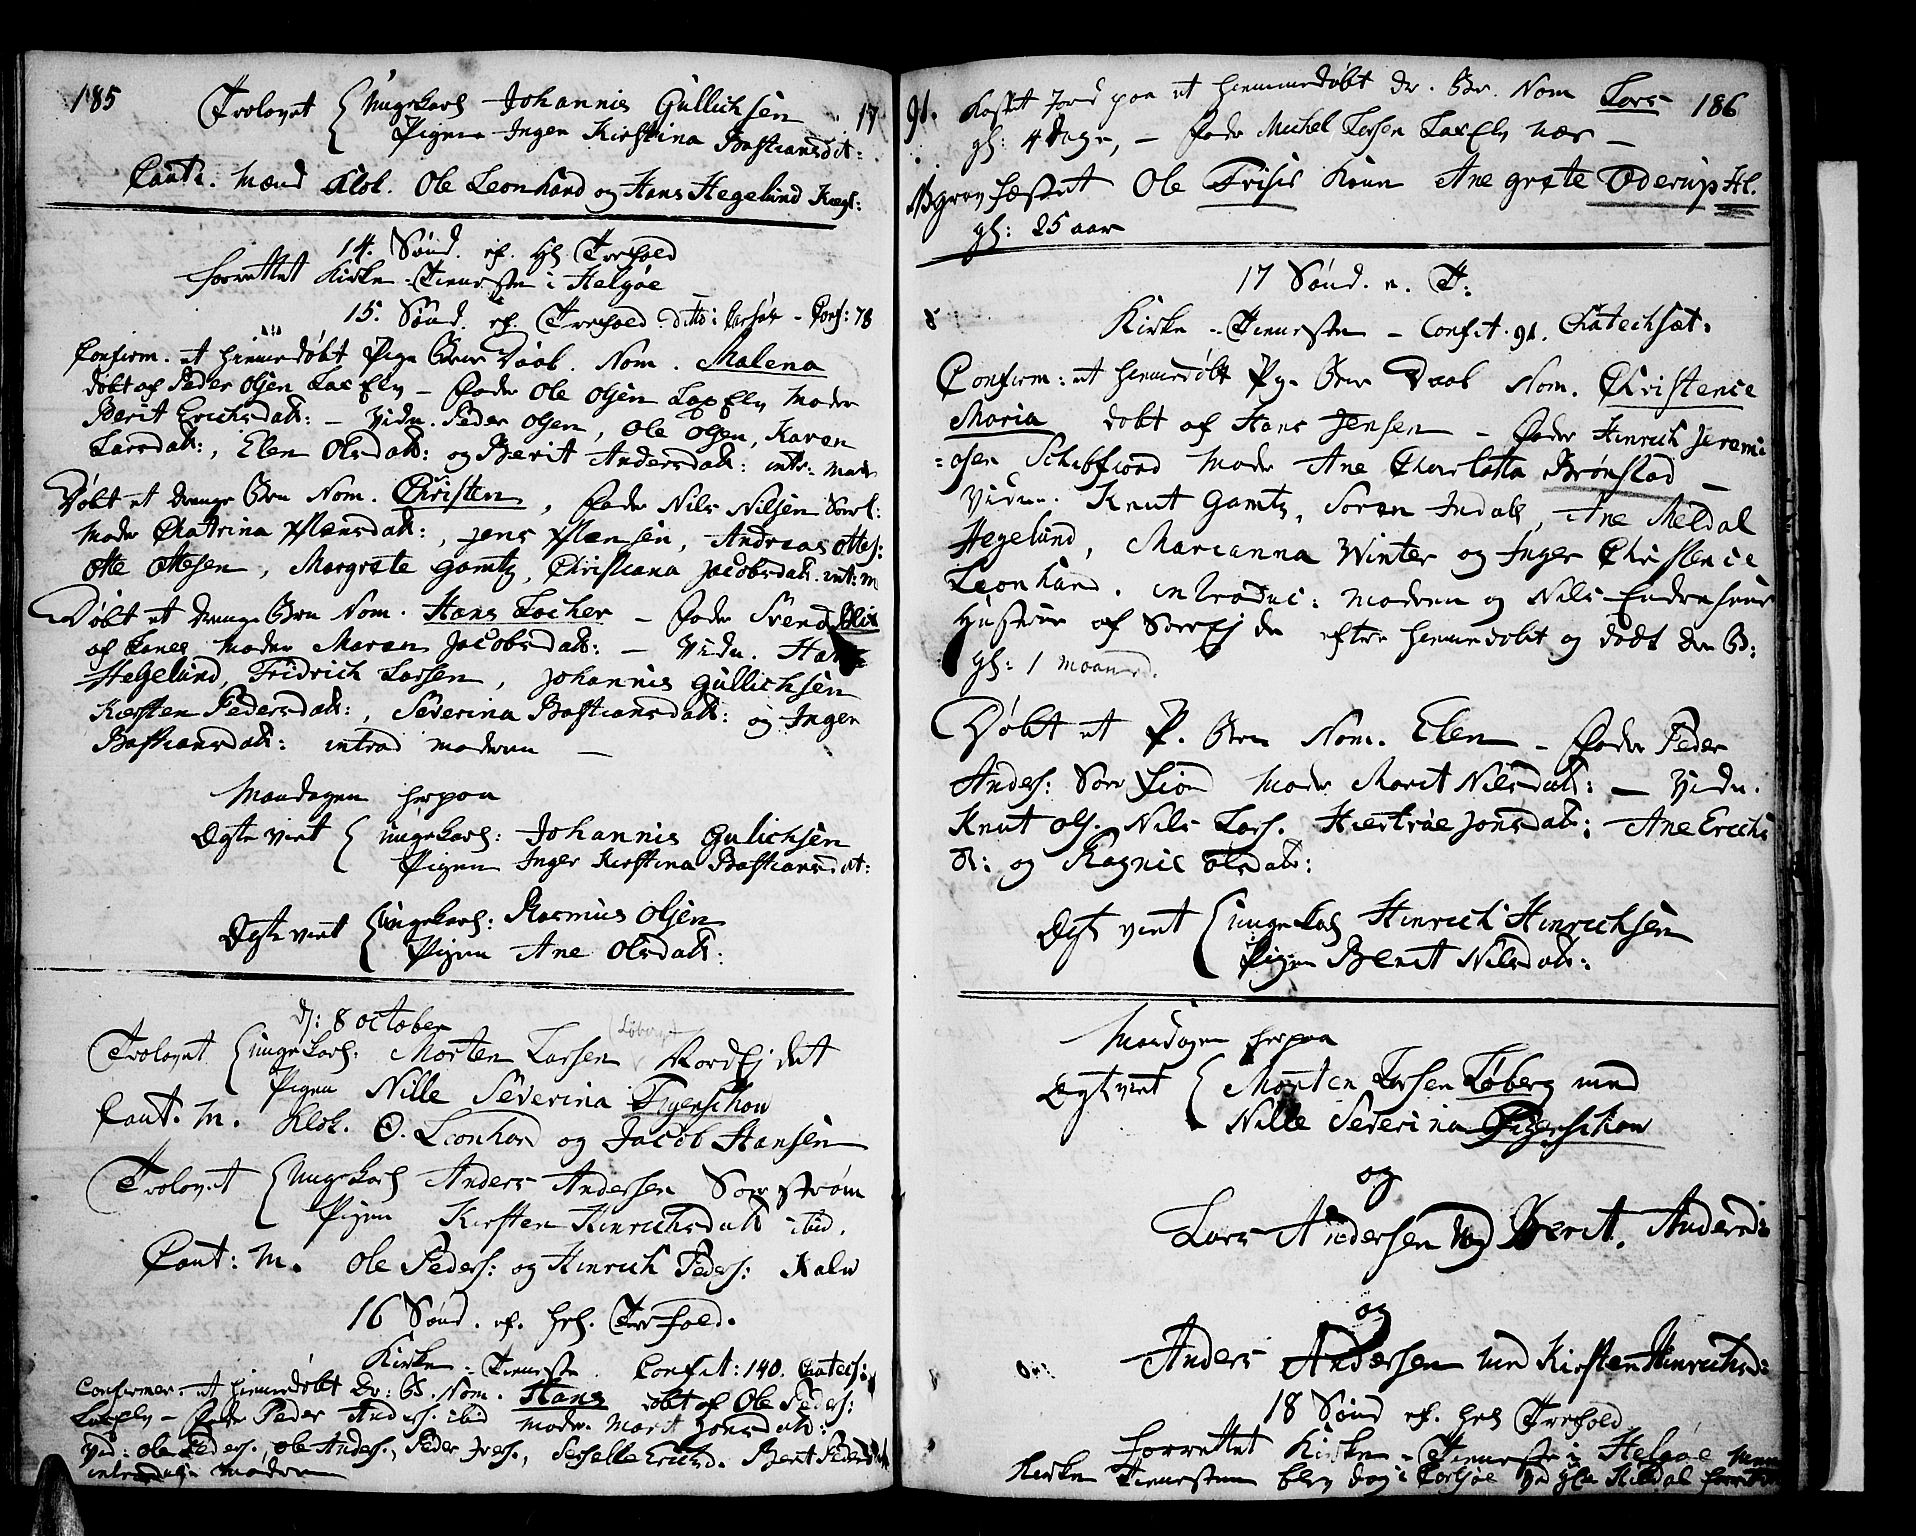 185
Trolovet { Ungekarl Johannis Gullichsen 17
Pigen Inger Kirstina Bastiansdat:
Caut. Mænd Klok. Ole Leonhard og Hans Hegelund
14. Sønd. ef. Hl Trefold
forrettet Kirke-Tienesten i Helgøe
15. Sønd. ef. Trefold. ditto i Carlsøe - Conf: 78
Confirm. et hiemmedøbt Pige Barn Daab. Nom. Malena
døbt af Peder Olsen LaxElv - Fader Ole Olsen LaxElv Moder
Berit Erichsdatt: - Vidn. Peder Olsen, Ole Olsen, Karen
Larsdatt:, Elen Olsdatt: og Berit Andersdatt: intr: modr
Døbt et drenge Brn Nom. Christen, Fader Nils Nilsen
Moder Chatrina Mænsdatt:, Jens Mænsen, Andreas Ottes:
Otte Ottesen, Margrete Gamtz, Christiana Jacobsdatt. int: m
Døbt et drenge Brn Nom. Hans Locher - Fader Svend
af moder Maren Jacobsdatt: - Vidn. Hans
Hegelund, Fridrich Larsen, Johannis Gullichsen
Kiersten Pedersdatt:, Severina Bastiansdatt: og Inger
Bastiansdatt: introd moderen -
Mandagen herpaa
Ægte viet { ungekarl: Johannis Gulichsen
Pigen Inger Kirstina Bastiansdat:
Ægte viet { ungekarl: Rasmus Olsen
Pigen Ane Olsdatt:
d: 8 October
Trolovet { ungekarl: Morten Larsen (Løberg)
Pigen Nille Severina Figenschow
Caut. M. Klok. O. Leonhard og Jacob Hansen
Trolovet { Ungekarl Anders Andersen Sørstrøm
Pigen Kirsten Hinrichsdatt ibid.
Caut: M. Ole Peders: og Hinrich Peders:
16 Sønd. ef. Hel. Trefold.
Kirke-Tieneste. Confit: 140. Chatech:
Confirmer: et hiemmedøbt Dr: B. Nom. Hans døbt af Ole Peders:
LaxElv - Fader Peder Anders. ibid moder. Marit Jonsdatt:
Vid: Ole Peders., Ole Anders., Peder Ivers., Erichsd. Berit
introduc: moderen
91. Kastet Jord paa et hiemmedøbt dr. Br. Nom Lars 186
gl: 4 Dage, - Fader Michel Larsen LaxElv
Begravfæstet Ole Friis's Kone Ane Grete Oderup Hl.
gl: 25 aar
17 Sønd. e. T:
Kirke-Tienesten - Confit. 91. Chatechsæt:
Confirm: et hiemmedøbt Pge Brn Daab Nom. Christence
Maria døbt af Hans Jensen - Fader Hinrich Jeremi
=asen Moder Ane Charlotta Brønstad -
Vidn. Knut Gamtz, Soren Indahl, Ane Meldal
Hegelund, Marianna Winter og Inger Christence
Leonhard. introduc: moderen og Nils
Hustrue af SørEjdde efter hiemmedøbt og dødt dr. B:
gl: 1 maaned.
Døbt et P. Brn Nom. Elen - Fader Peder
Anders: Sørfiord Moder Marit Nilsdatt: - Vidn.
Knut Ols. Nils Lars. Jonsdatt: Ane Erichs
D: og Ragnil Olsdatt:
Ægt viet { ungekarl Hinrich Hinrichsen
Pigen Berit Nilsdatt:
Mandagen herpaa
Ægtviet { Morten Larsen Løberg med
Nille Severina Figenschow
og
Lars Andersen og Berit. Andersd:
og
Anders Andersen med Kirsten Hinrichsd:
18 Sønd ef. Hel Trefold
forrettet Kirke-Tieneste i Helgøe men
Kirke Tienesten blev dog i Carlsøe ved Meldal